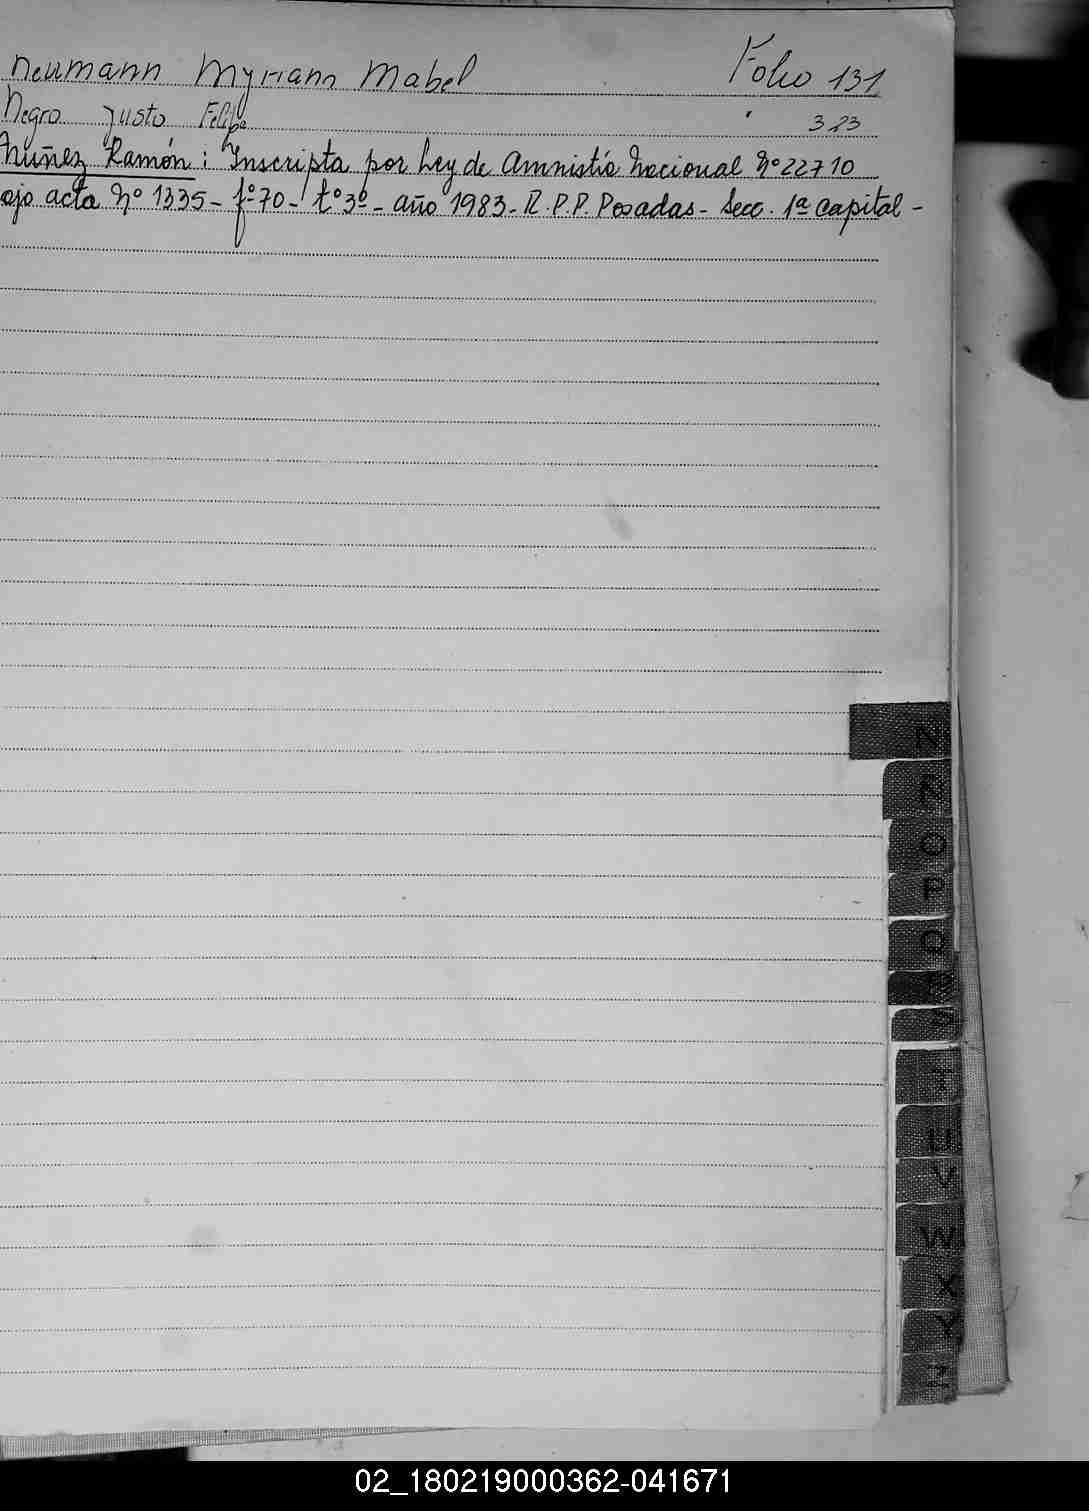 Neumann Myriam Mabel Folio 131
Negro Justo Felipe " 323
Nuñez Ramón: Inscripta por Ley de Amnistía Nacional Nº 22710
ojo acta Nº 1335 - fº 70 - tº 3º - año 1983 - R.P.P. Posadas - Secc. 1ª Capital -
N
Ñ
O
P
Q
S
T
U
V
W
X
Y
Z
02_180219000362-041671